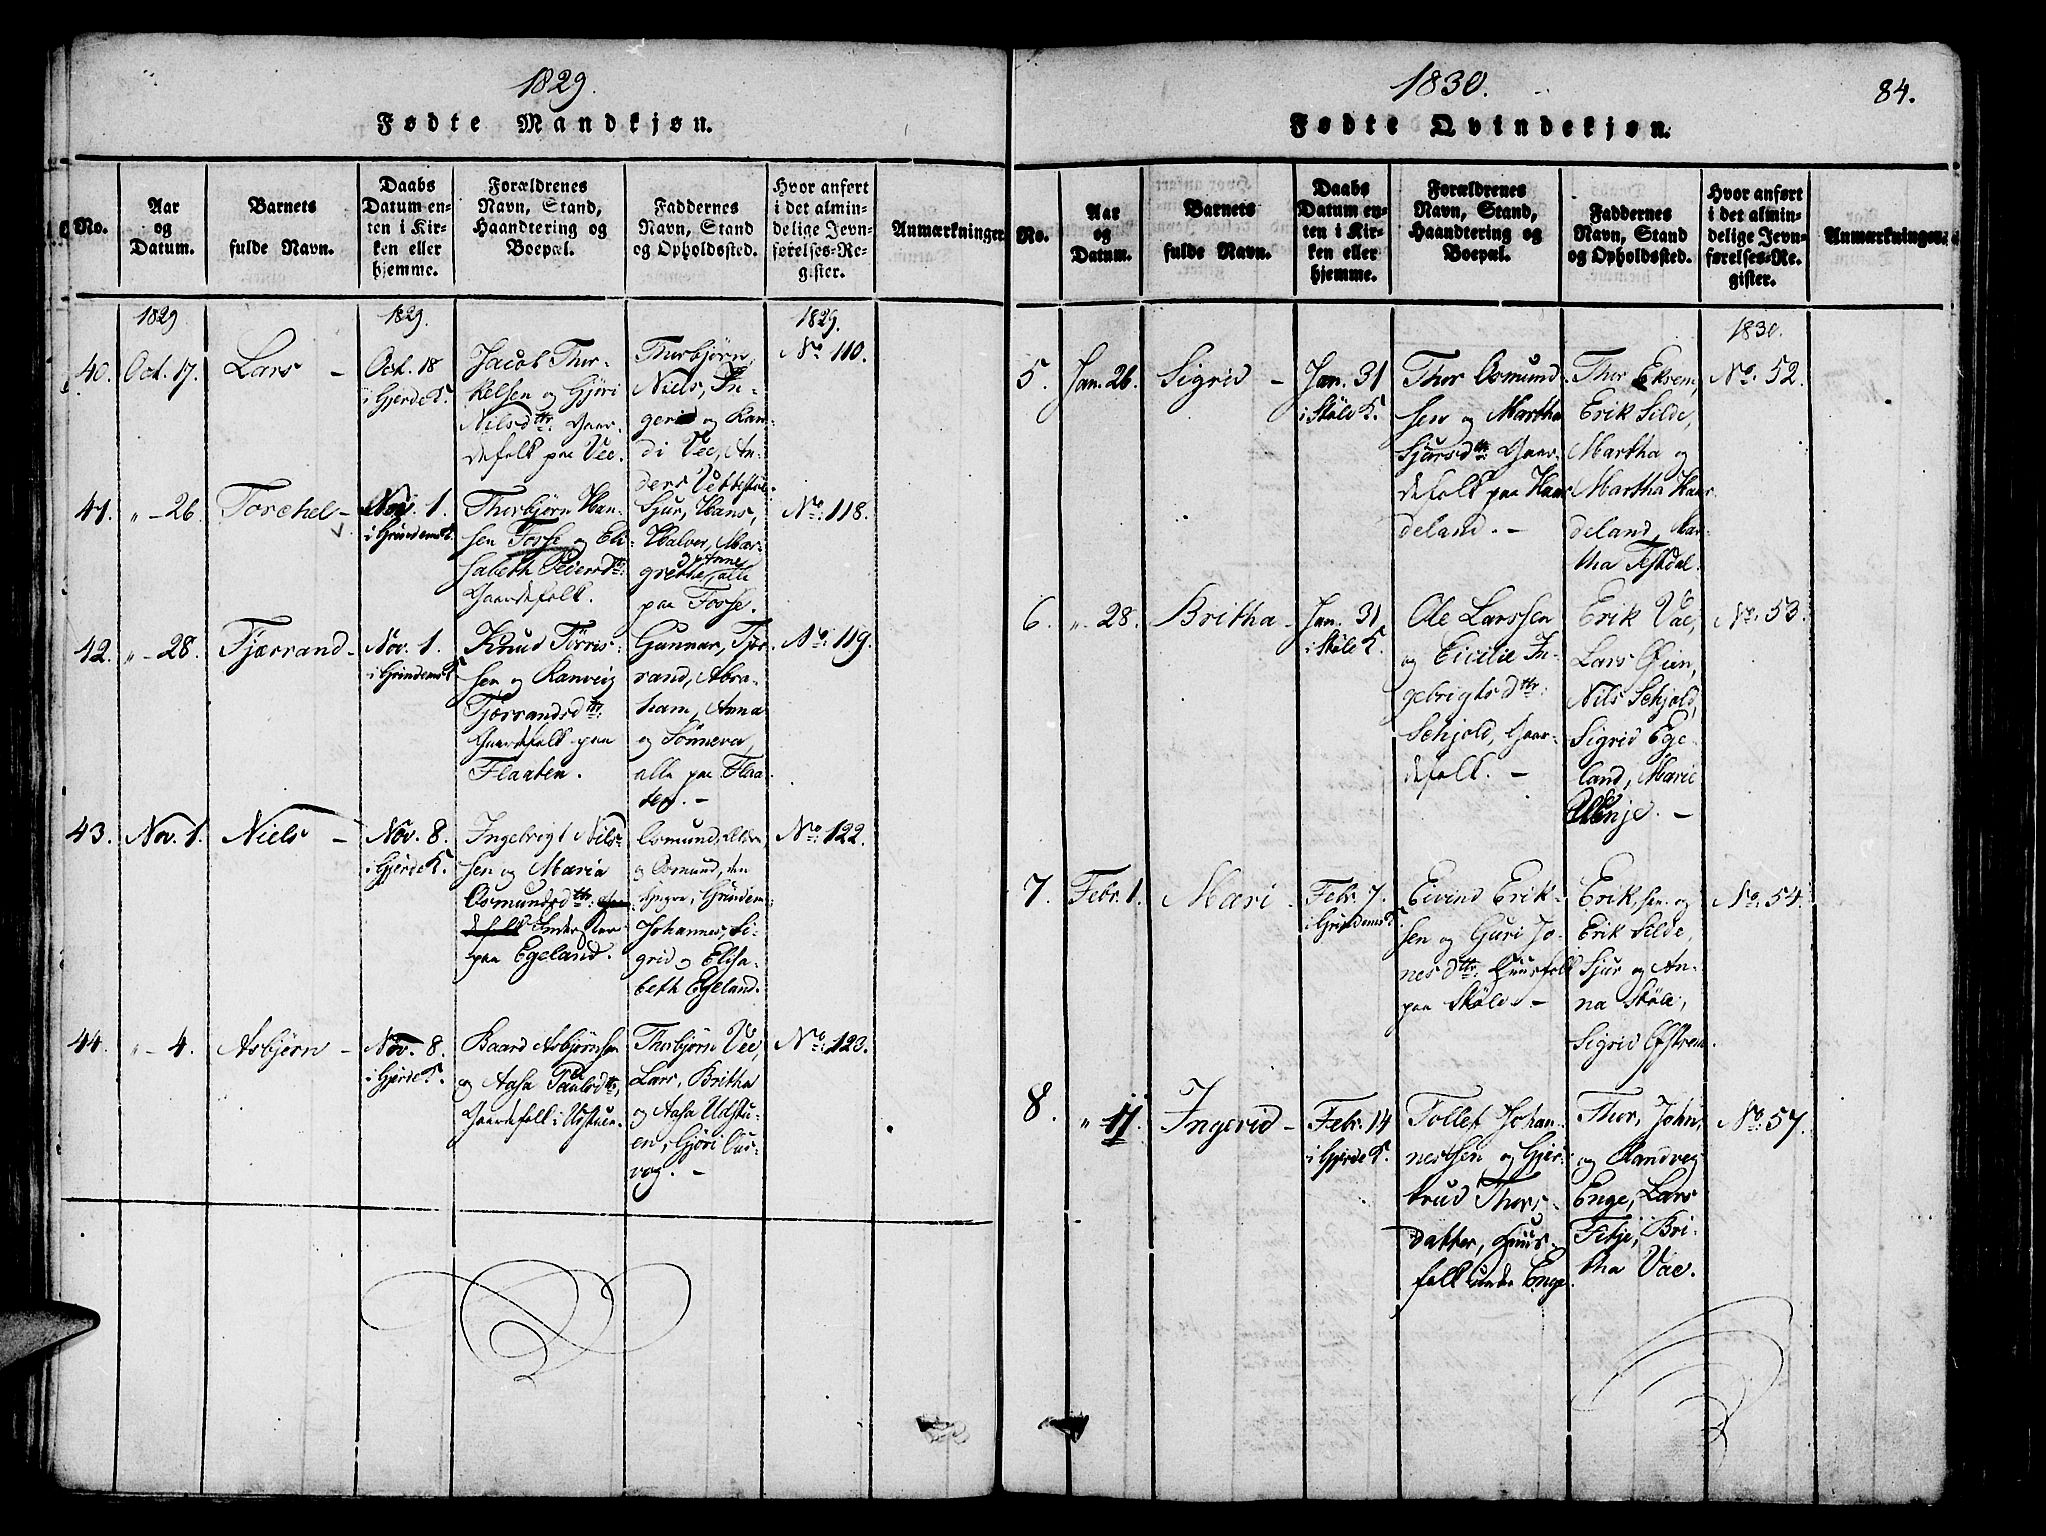 1829.
Fødte Mandkjøn.
No.
Aar
og
Datum.
Barnets
fulde Navn.
Daabs
Datum en-
ten i Kir-
ken eller
hjemme.
Forældrenes
Navn, Stand,
Haandtering og
Boepæl.
Faddernes
Navn, Stand
og Opholdssted.
Hvor anført
i det almin-
delige Jevn-
førelses-Re-
gister.
Anmærkninger
1829
1829.
1829.
40.
Oct. 17.
Lars –
Oct. 18
i Gjerde K.
Jacob Thor-
kelsen og Gjøri
Nilsdtr. Gaar-
defolk paa Vee.
Thorbjørn,
Niels, In-
gerid og Ran-
di Vee, An-
ders Vettestøl.
No. 110.
41.
" – 26.
Torchel –
Nov. 1.
i Grindem K.
Thorbjørn Han-
sen Fosse og Eli-
sabeth Pedersdtr.
Gaardefolk.
Sjur, Hans,
Halvor, Mar-
grethe og Anne alle
paa Fosse.
No. 118.
42.
" – 28.
Tjærrand –
Nov. 1.
i Grindem K.
Knud Tørris-
sen og Ranveig
Tjærrandsdtr.
Gaardefolk paa
Flaaten.
Gunnar, Tjør-
rand, Abra-
ham, Anna
og Sønneva,
alle paa Flaa-
ten. –
No. 119.
43.
Nov. 1.
Niels –
Nov. 8.
i Gjerde K.
Ingebrigt Nils-
sen og Maria
Osmundsdtr.
Inderster
paa Egeland.
Osmund, ældre
og Osmund, den
yngre, Grindem
Johannes, Si-
grid og Elisa-
beth Egeland.
No. 122.
44.
" – 4.
Asbjørn –
Nov. 8.
i Gjerde K.
Baard Asbjørnsen
og Aasa Paulsdtr,
Gaardefolk i Udstuen.
Thorbjørn Vee,
Lars, Britha
og Aasa Udstu-
en, Gjøri Aus-
vog. –
No. 123.
1830.
84.
Fødte Qvindekjøn.
No.
Aar
og
Datum.
Barnets
fulde Navn.
Daabs
Datum en-
ten i Kir-
ken eller
hjemme.
Forældrenes
Navn, Stand,
Haandtering og
Boepæl.
Faddernes
Navn, Stand
og Opholdssted.
Hvor anført
i det almin-
delige Jevn-
førelses-Re-
gister.
Anmærkninger.
1830.
5.
Jan. 26.
Sigrid –
Jan. 31
i Skole K.
Thor Osmund-
sen og Martha
Sjursdtr. Gaar-
defolk paa Haar-
deland. –
Thor Ekrem,
Erik Silde,
Martha og
Martha Haar-
deland, Mar-
tha Teskdal.
No. 52.
6.
" 28.
Britha –
Jan. 31
i Skole K.
Ole Larssen
og Cicilie In-
gebrigtsdtr.
Schjold, Gaar-
defolk. –
Erik Vae,
Lars Øien,
Nils Schjold,
Sigrid Ege-
land, Marie
Enje. –
No. 53.
7.
Febr. 1.
Mari –
Febr. 7.
i Grindem K.
Eivind Erik-
sen og Guri Jo-
nesdtr. Huusfolk
paa Skole –
Erik, sen. og
Erik Silde,
Sjur og An-
na Skole,
Sigrid Østrem.
No. 54.
8.
" 11.
Ingerid –
Febr. 14
i Gjerde K.
Tollef Johan-
nessen og Gjer-
trud Thors-
datter, Huus-
folk under Enge.
Thor, John,
og Randveg
Enge, Lars
Fitje, Bri-
tha Vae.
No. 57.